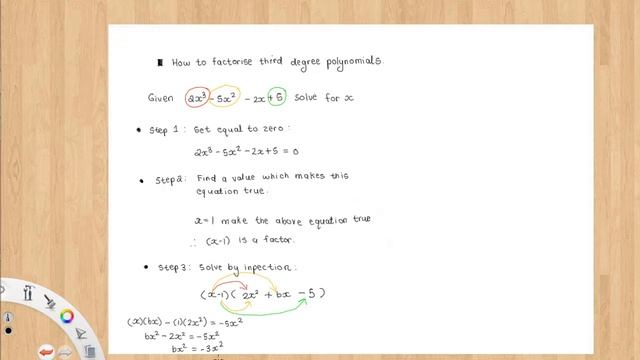 How to factorise third degree polynomials
Given 2x³ - 5x² - 2x + 5 solve for x
• Step 1: Set equal to zero:
2x³ - 5x² - 2x + 5 = 0
• Step 2: Find a value which makes this
equation true.
x = 1 make the above equation true
∴ (x-1) is a factor.
• Step 3: Solve by inpection:
(x-1)(2x² + bx - 5)
(x)(bx) - (1)(2x²) = -5x²
bx² - 2x² = -5x²
bx² = -3x²